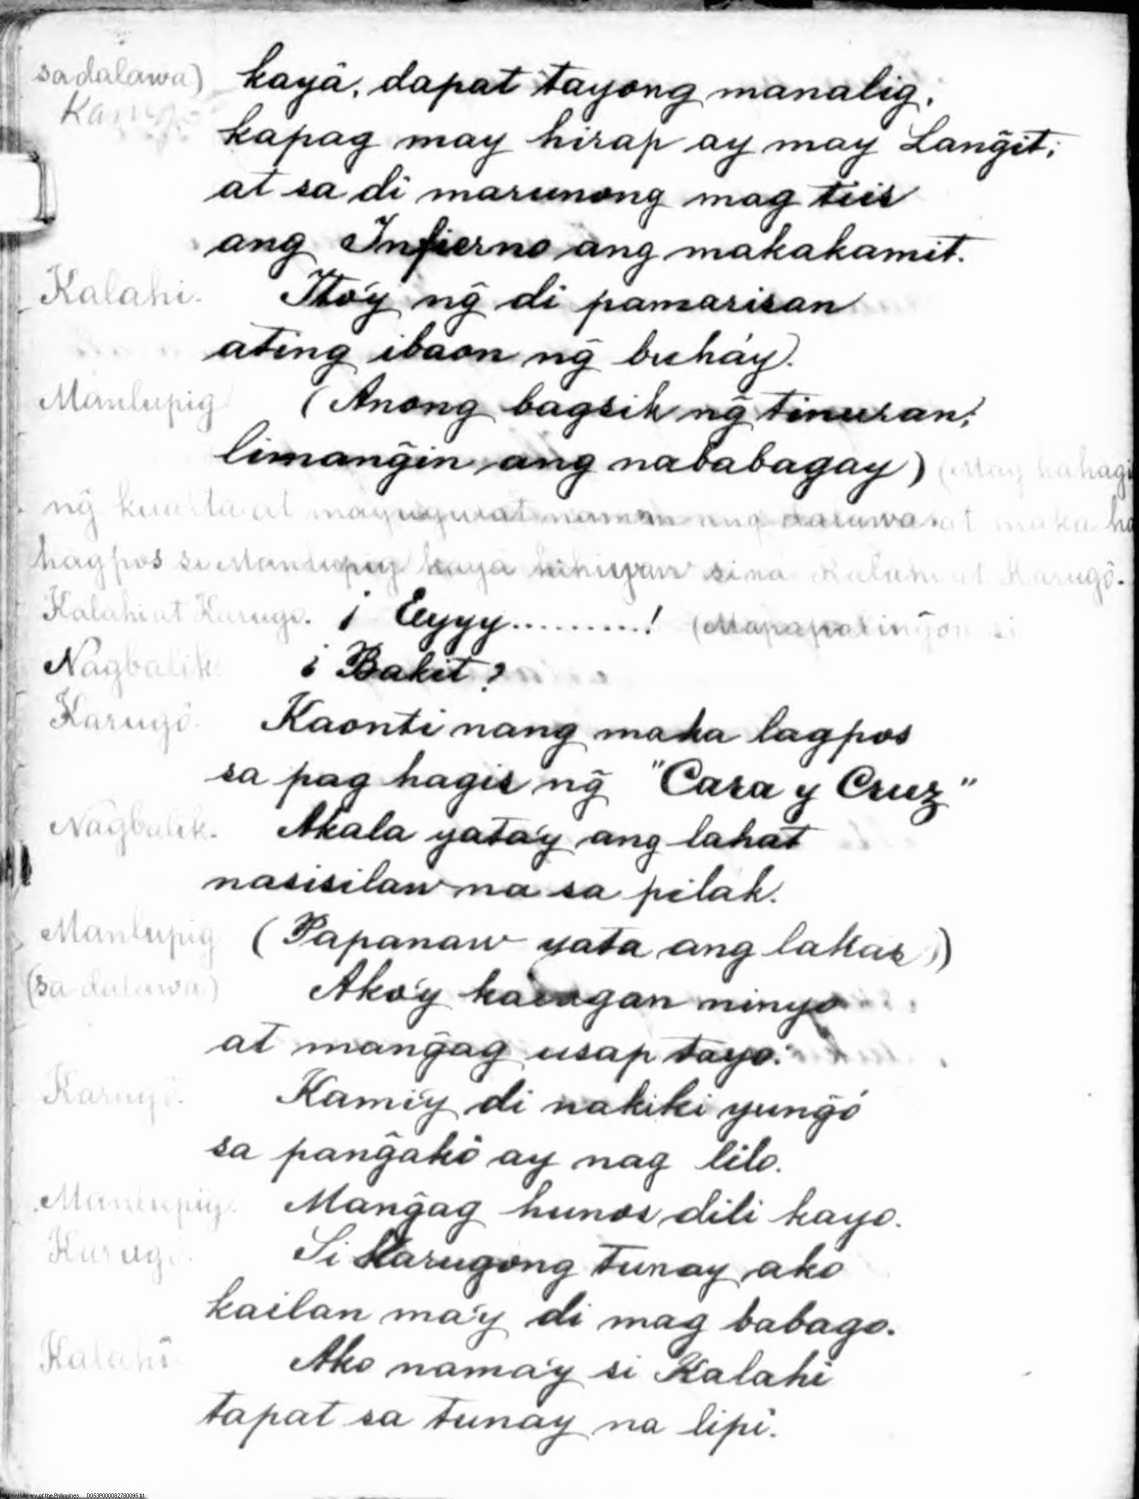 sa dalawa) kayâ, dapat tayong manalig,
kapag may hirap ay may Lang̃it;
at sa di marunong mag tiis
ang Infierno ang makakamit.
Kalahi. Ito'y ng̃ di pamarisan
ating ibaon ng̃ buháy.
Manlupig (Anong bagsik ng̃ tinuran;
limang̃in ang nababagay) (May hahagis
ng̃ kuarta at maka
hagpos si Manlupig kayâ sina Kalahi at Karugô.
Kalahi at Karugo. ¡ Eyyy..........! (Mapapaling̃on si
Nagbalik ¿ Bakit ?
Karugô. Kaonti nang maka lagpos
sa pag hagis ng̃ "Cara y Cruz"
Nagbalik. Akala yata'y ang lahat
nasisilaw na sa pilak.
Manlupig (Papanaw yata ang lakas)
(sa dalawa) Ako'y kasagan ninyo
at mang̃ag usap tayo.
Karugô. Kami'y di nakiki yung̃ó
sa pang̃akò ay nag lilo.
Manlupig. Mang̃ag hunos dili kayo.
Karugô. Si Karugong tunay ako
kailan ma'y di mag babago.
Kalahi Ako nama'y si Kalahi
tapat sa tunay na lipi.